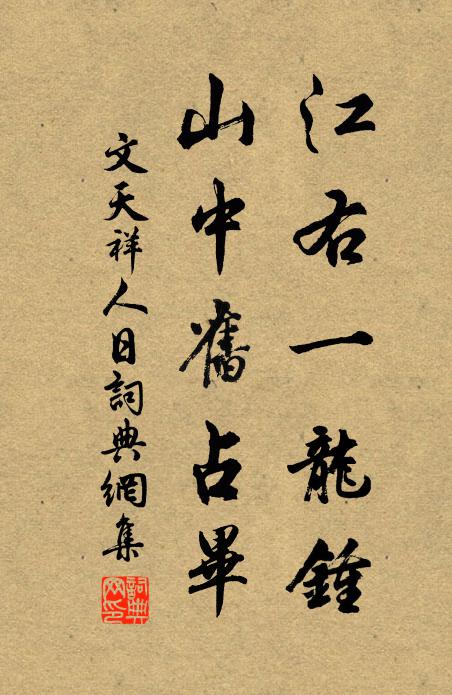 江右一龍鍾
山中舊占畢
文天祥人日詞典網集
詞典网印